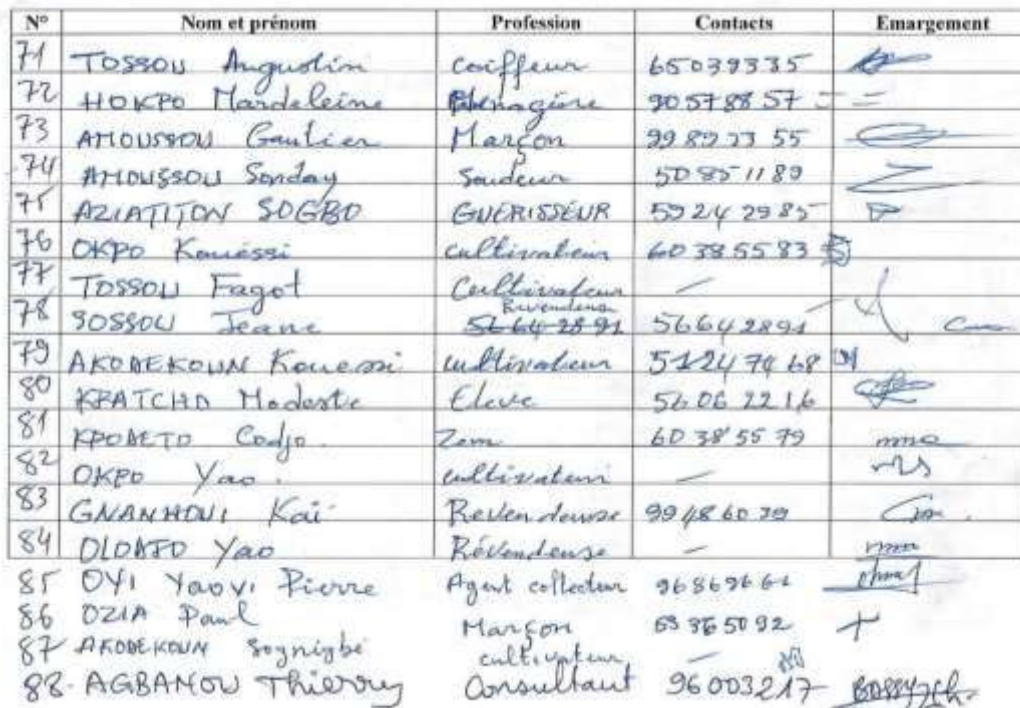 N° Nom et prénom Profession Contacts Emargement
71 TOSSOU Augustin coiffeur 65039335
72 HOKPO Mardeleine Menagère 90578857
73 AMOUSSOU Gautier Marçon 55
74 AMOUSSOU Sonday Soudeur 50851189
75 AZIATITON SOGBO GUERISSEUR 59242985
76 OKPO Kouessi cultivateur 60385583
77 TOSSOU Fagot Cultivateur —
78 SOSSOU Jeane Revendeuse 56642891 56642891
79 AKODEKOUN Kouessi cultivateur 51247468
80 KPATCHO Modeste Eleve 56062216
81 Codjo Zem 60385579
82 OKPO Yao cultivateur —
83 GNANHOUI Kaï Revendeuse 99486039
84 Yao Révendeuse —
85 OYI Yaovi Pierre Agent collecteur 96869661
86 OZIA Paul Marçon
87 AKODEKOUN Sognigbé cultivateur —
88. AGBANOU Thierry Consultant 96003217